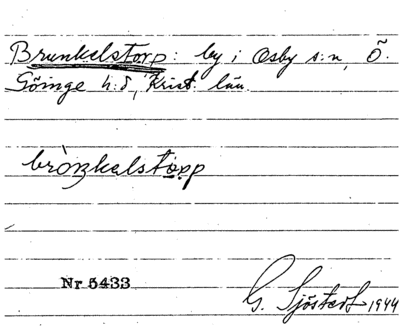 Brunkelstorp: by i Osby s:n, Ö.
Göinge h:d, Krist. län.
bròŋkalstopp
Nr 5433
G. Sjöstedt 1944